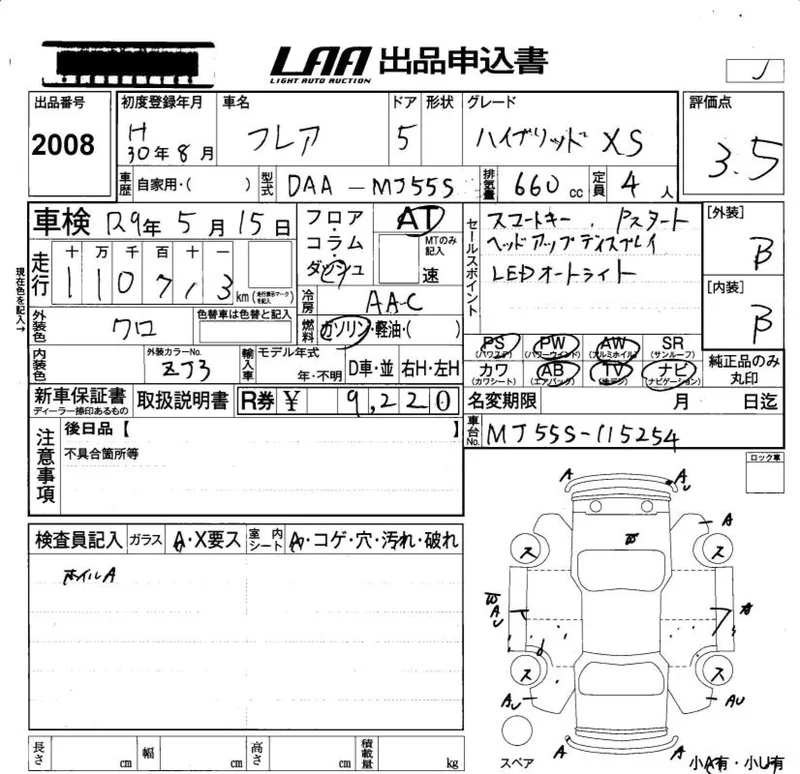 LAA 出品申込書
LIGHT AUTO AUCTION
J
出品番号
2008
初度登録年月
H
30年8月
車名
フレア
ドア
5
形状
グレード
ハイブリッド XS
評価点
3.5
車歴
自家用・( )
型式
DAA-MJ55S
排気量
660cc
定員
4人
車検 R9年5月15日
現在色を記入→
走行
十 万 千 百 十 一
1 1 0 7 1 3
km (走行表示マークを記入)
フロア
・
コラム
・
ダッシュ
AT
MTのみ記入
速
セールスポイント
スマートキー、Pスタート
ヘッドアップディスプレイ
LEDオートライト
[外装]
B
[内装]
B
冷房
AAC
外装色
クロ
色替車は色替と記入
燃料
ガソリン・軽油・( )
PS
(パワステ)
PW
(パワーウインド)
AW
(アルミホイル)
SR
(サンルーフ)
カワ
(カワシート)
AB
(エアバック)
TV
(地デジ)
ナビ
(ナビゲーション)
純正品のみ
丸印
内装色
外装カラーNo.
ZJ3
輸入車
モデル年式
年・不明
D車・並
右H・左H
新車保証書
ディーラー捺印あるもの
取扱説明書
R券
¥ 9,220
名変期限 月 日迄
車台No.
MJ55S-115254
注意事項
後日品【 】
不具合箇所等
ロック車
検査員記入
ガラス
A・X要ス
室内シート
A・コゲ・穴・汚れ・破れ
ホイルA
A
A
U
A
W
ス
ス
W
A
U
A
ス
ス
AU
AU
A
A
スペア
小A有・小U有
長さ cm
幅 cm
高さ cm
積載量 kg